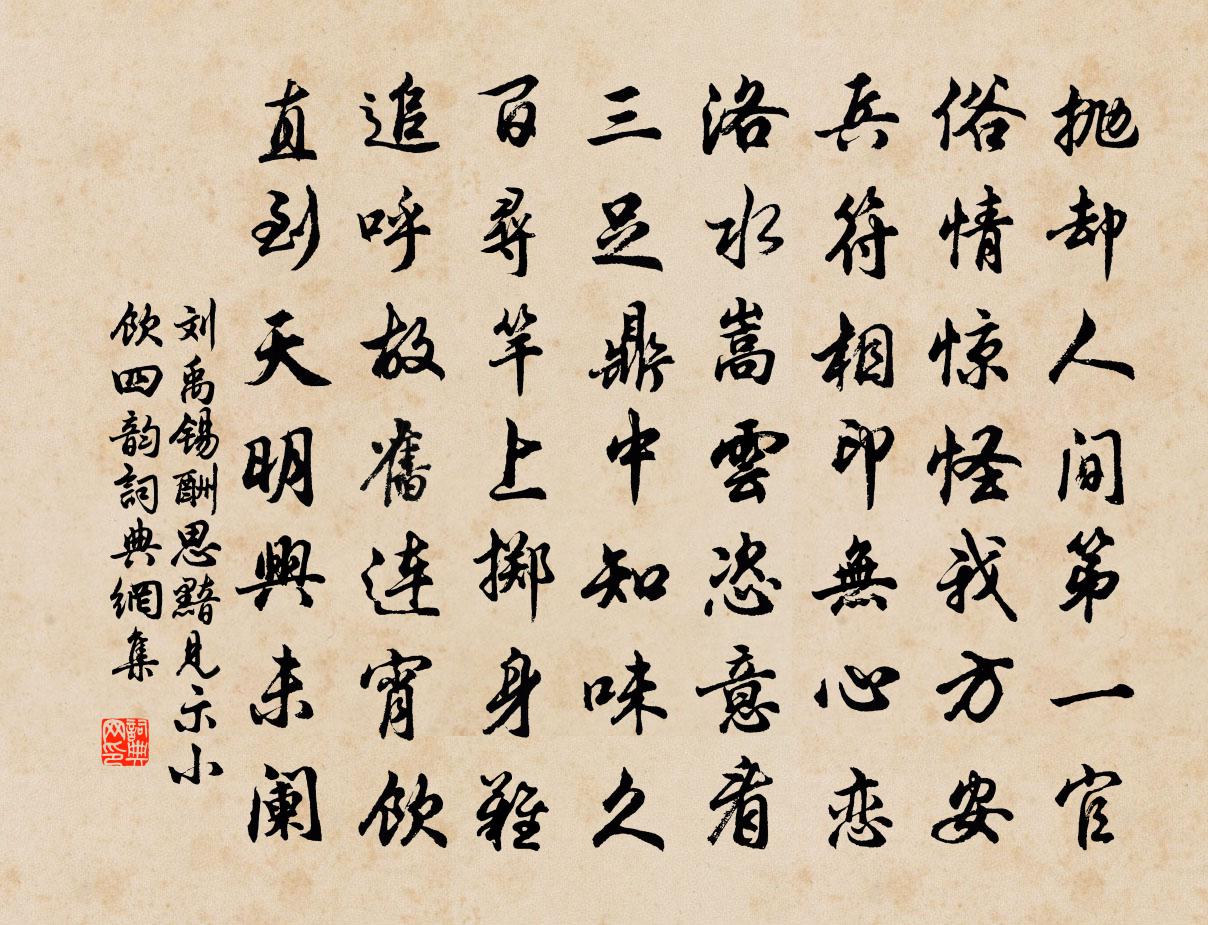 抛却人间第一官
俗情惊怪我方安
兵符相印無心恋
洛水嵩雲恣意看
三足鼎中知味久
百尋竿上掷身難
追呼故舊连宵飲
直到天明興未阑
刘禹锡酬思黯見示小
飲四韵詞典網集
詞典
网印